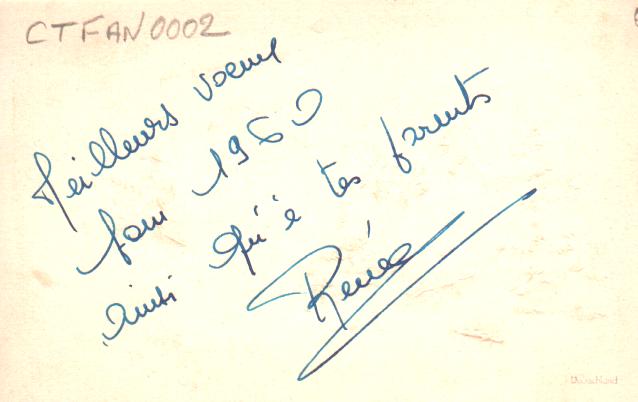 CTFAN0002
Meilleurs voeux
pour 1960
ainsi qu'à tes parents
Renée
Deutschland